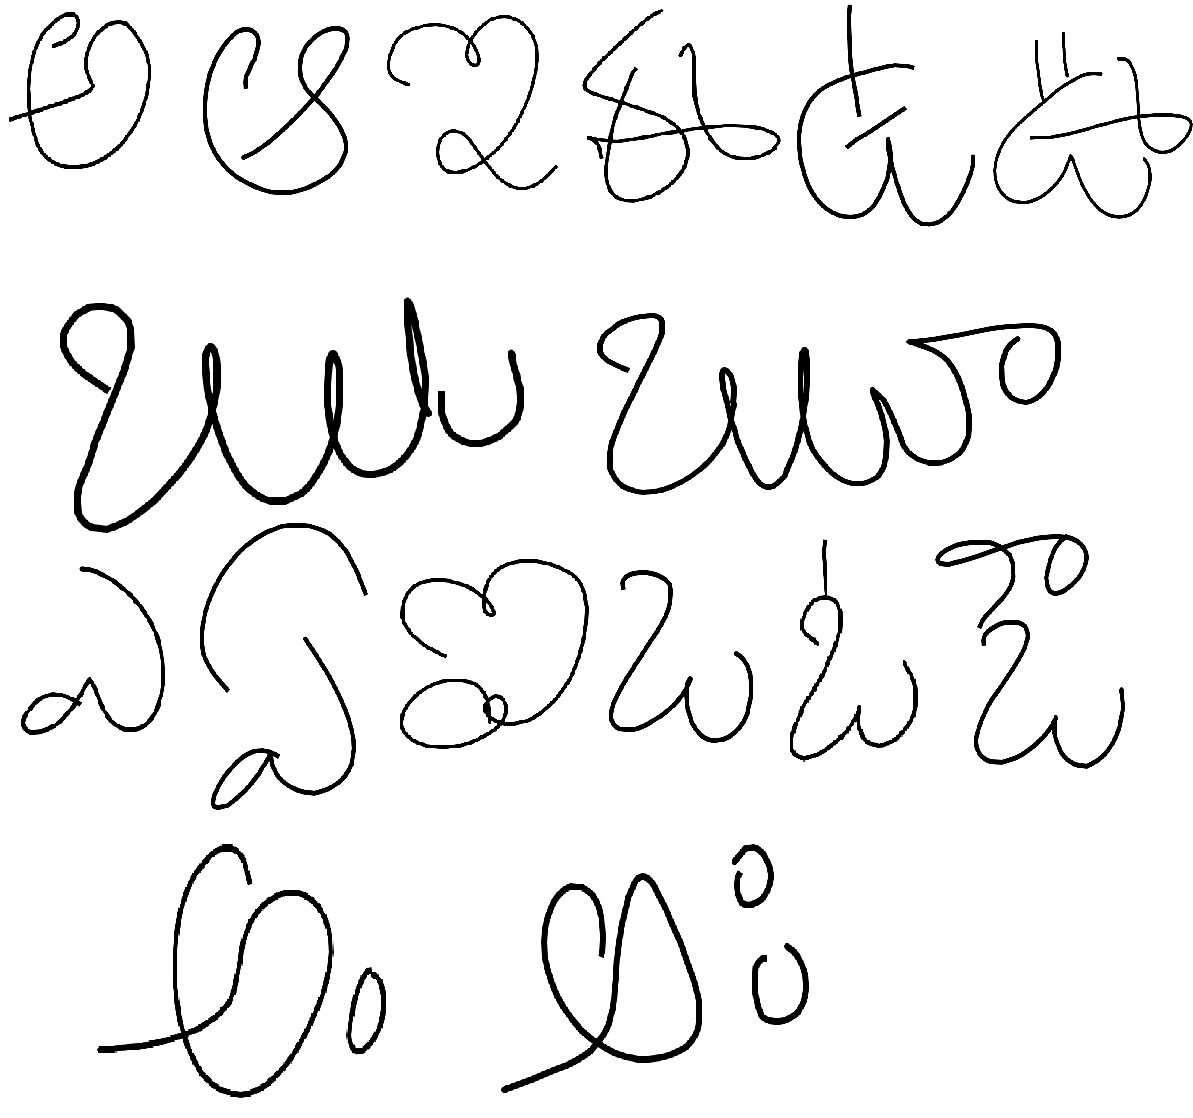 అ ఆ ఇ ఈ ఉ ఊ
ఋ ౠ
ఎ ఏ ఐ ఒ ఓ ఔ
అం అః